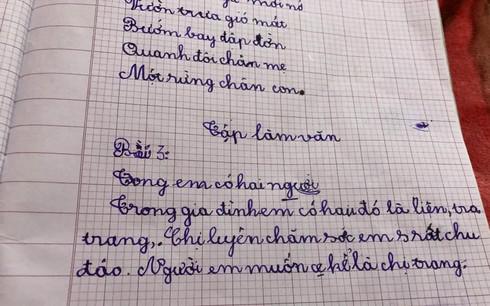 mới nở
Vườn trưa gió mát
Bướm bay dập dờn
Quanh đôi chân mẹ
Một rừng chân con.
Tập làm văn
Bài 3:
Trong em có hai người
Trong gia đình em có hai đó là liên, tra
trang,. Chị luyên chăm sóc em rất chu
đáo. Người em muốn kể là chị trang.